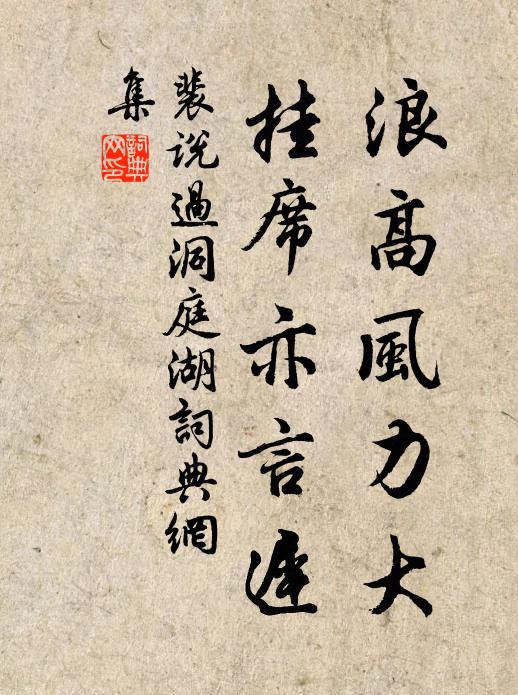 浪高風力大
挂席亦言遲
裴說過洞庭湖詞典網
集
詞典
网印